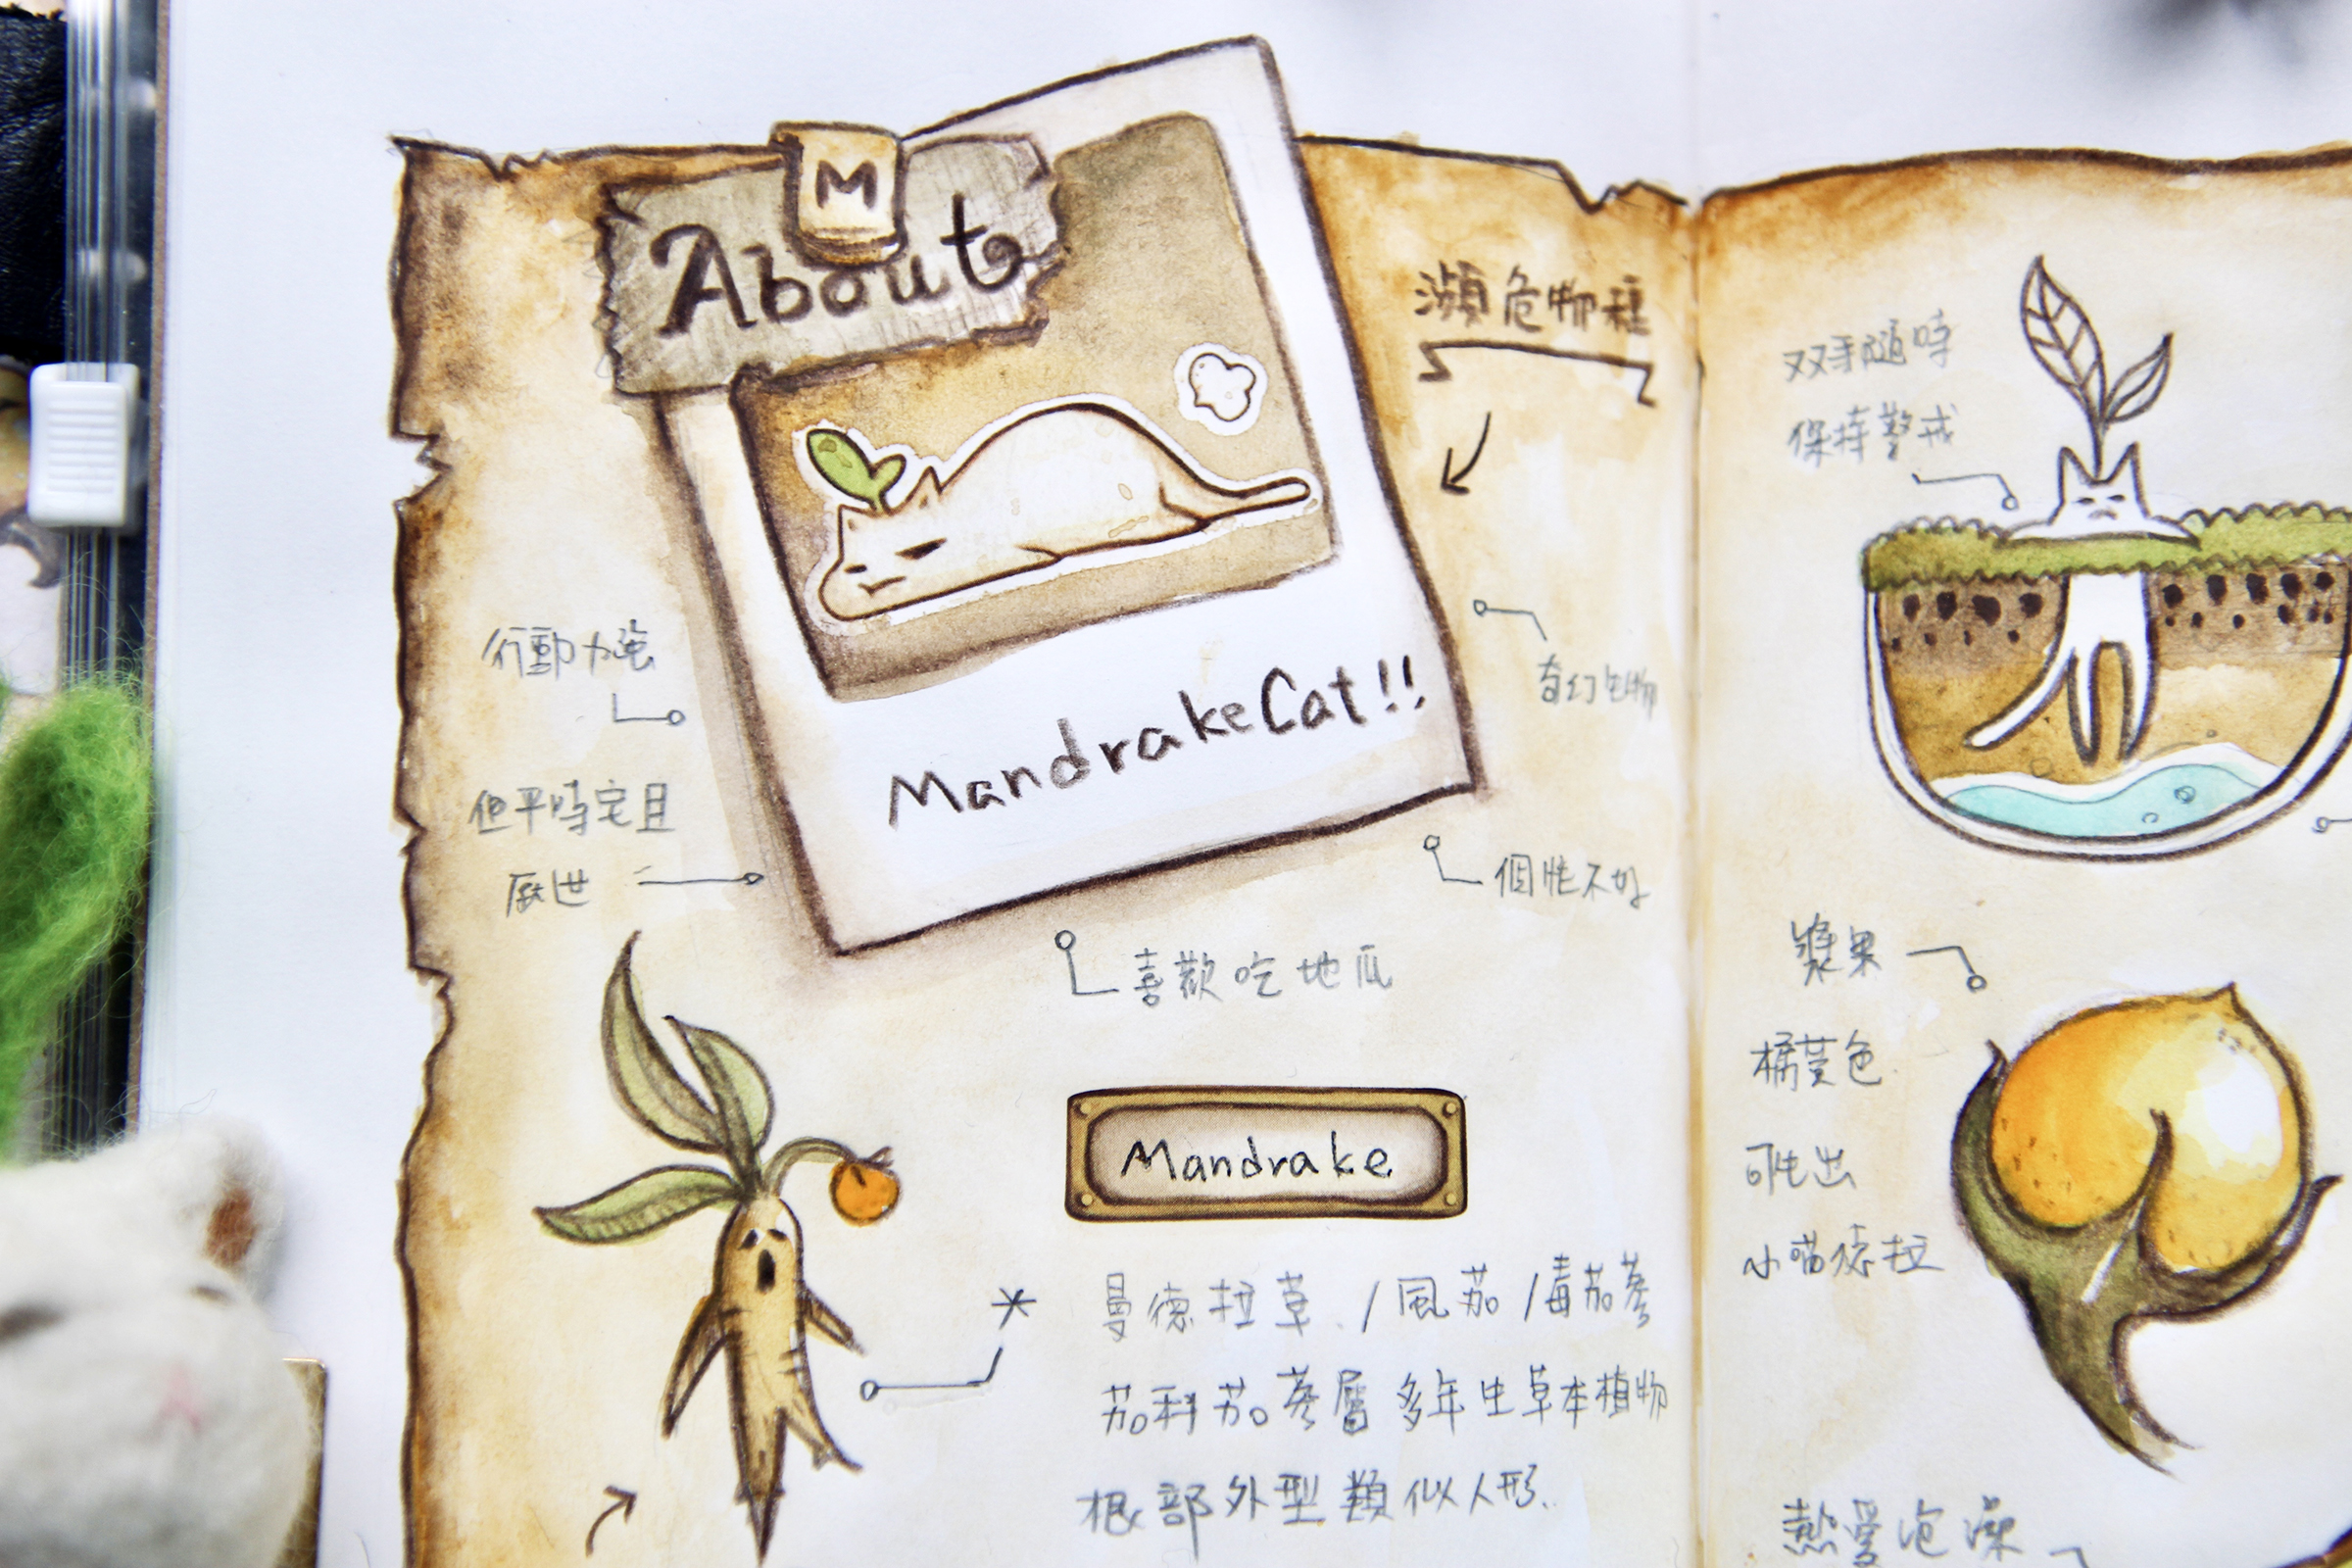 M
About
MandrakeCat!!
瀕危物種
奇幻生物
行動力強
但平時宅且
厭世
個性不好
喜歡吃地瓜
Mandrake
* 曼德拉草 / 風茄 / 毒茄蔘
茄科茄蔘屬多年生草本植物
根部外型類似人形.
双手随時
保持警戒
漿果
橘黃色
可吐出
小喵德拉
熱愛泡澡